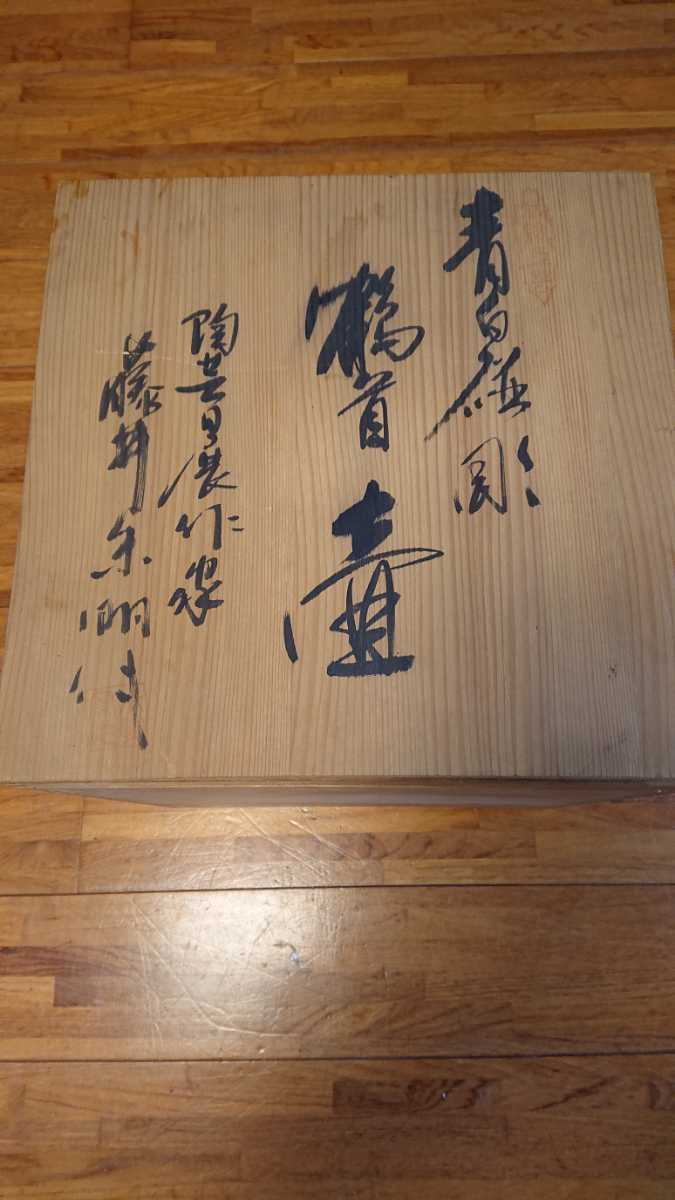 青白磁彫
鶴首壷
陶芸日展作家
藤井朱明作